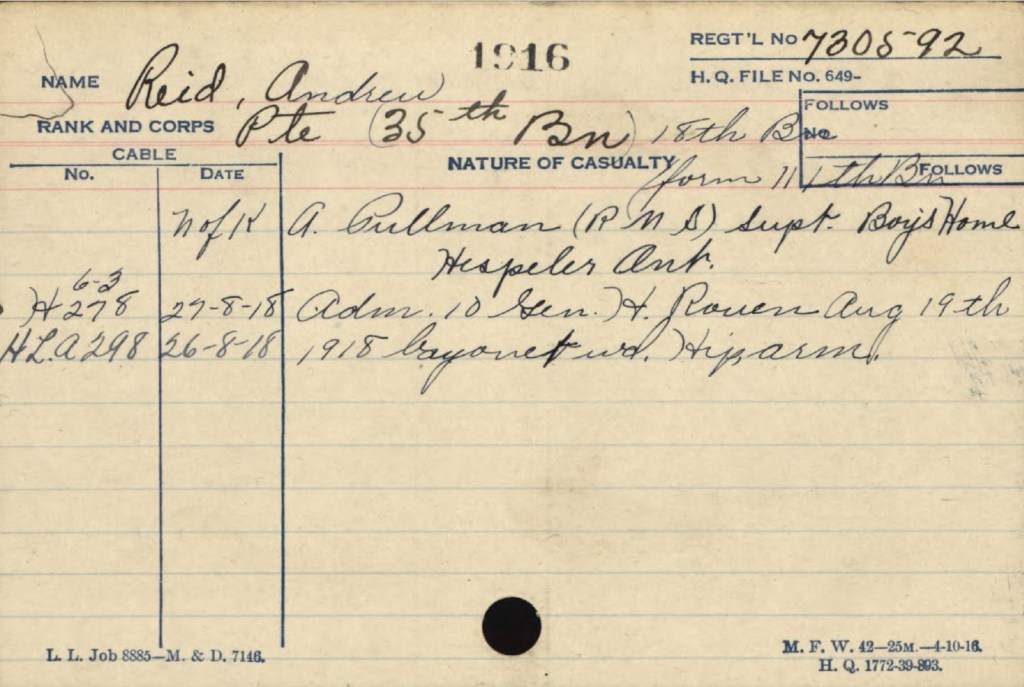 1916
REGT'L No 730592
H. Q. FILE No. 649-
NAME Reid, Andrew
FOLLOWS
No.
FOLLOWS
RANK AND CORPS Pte (35th Bn) 18th Bn
form 111th Bn
CABLE
NATURE OF CASUALTY
No. DATE
N of K A. Pullman (R M S) Supt. Boys Home
Hespeler Ont.
6-3
H 278 27-8-18 Adm. 10 Gen. H. Rouen Aug 19th
H.L.A 298 26-8-18 1918 bayonet wd. Hip arm.
L. L. Job 8885—M. & D. 7146.
M. F. W. 42—25M.—4-10-16.
H. Q. 1772-39-893.